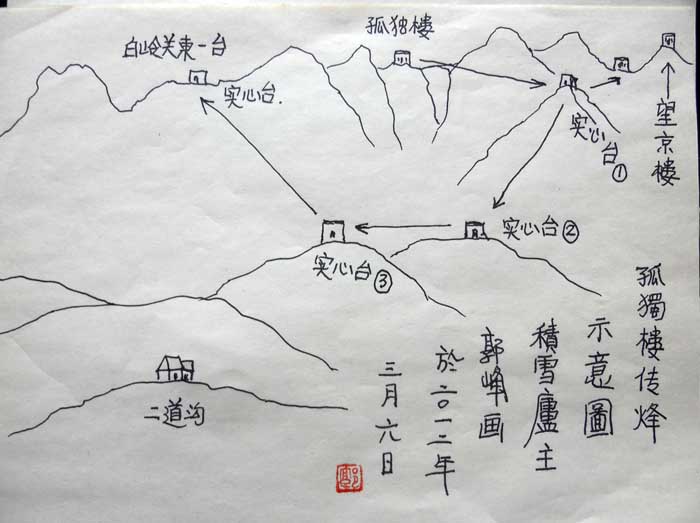 白岭关東一台
实心台.
孤独楼
实心台①
望京楼
实心台②
实心台③
二道沟
孤獨楼传烽
示意圖
積雪廬主
郭峰画
於二〇一二年
三月六日